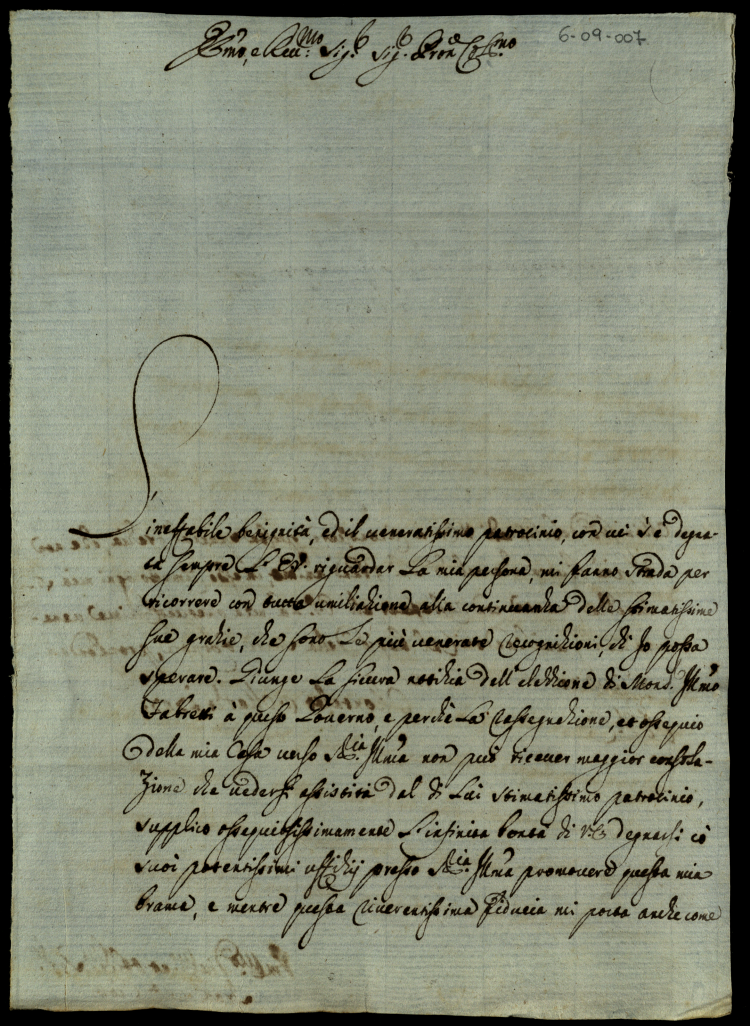 Em̃o, e Reu:mo Sig.r Sig.r Pron.e Col.mo
6-09-007
L'ineffabile benignità, ed il veneratissimo patrocinio, con cui s'è degna-
ta sempre L'E. V. riguardar La mia persona, mi fanno strada per
ricorrere con tutta umiliazione alla continuanza delle stimatissime
sue grazie, che sono Le più venerate recognizioni, ch'Io possa
sperare. Giunge La sicura notizia dell'elezzione di Mons.r Jllm̃o
Fabretti à questo Governo, e perchè La rassegnazione, et ossequio
della mia Casa verso S.ria Jllm̃a non può ricever maggior consola-
zione che vedersi assistita dal di Lui stimatissimo patrocinio,
supplico ossequiosissimamente L'infinita bontà di V. E. degnarsi có
suoi potentissimi uffizij presso S.ria Jllm̃a promovere questa mia
brama, e mentre questa riverentissima fiducia mi porta anche come